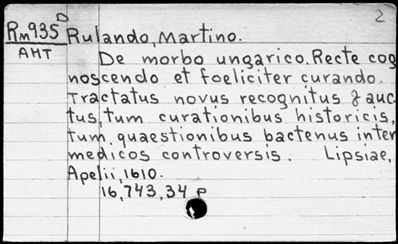 D 2
Rm935 Rulando, Martino.
AHT
De morbo ungarico. Recte cog
noscendo et foeliciter curando.
Tractatus novus recognitus & auc
tus, tum curationibus historicis,
tum quaestionibus bactenus inter
medicos controversis. Lipsiae,
Apelii, 1610.
16,743,34 p